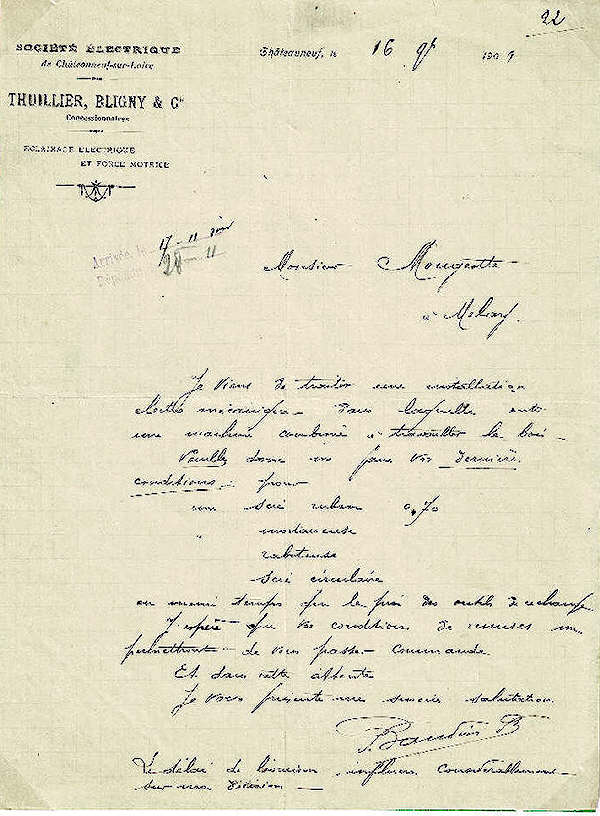 22
SOCIÉTÉ ÉLECTRIQUE
de Châteauneuf-sur-Loire
THUILLIER, BLIGNY & Cie
Concessionnaires
ECLAIRAGE ELECTRIQUE
ET FORCE MOTRICE
Châteauneuf, le 16 9bre 1909
Arrivée le 17-11
28-11
Monsieur Mougeotte
à
Je viens de traiter une installation
électro mécanique dans laquelle entre
une machine combinée à travailler le bois
Veuillez donc me faire vos dernières
conditions pour
une scie ruban 0,70
" mortaiseuse
raboteuse
scie circulaire
en même temps que le prix des outils de rechange
J'espère que vos conditions de remises me
permettront de vous passer commande
Et dans cette attente
Je vous présente mes sincères salutations
Baudin
Le délai de livraison influera considérablement
sur ma décision